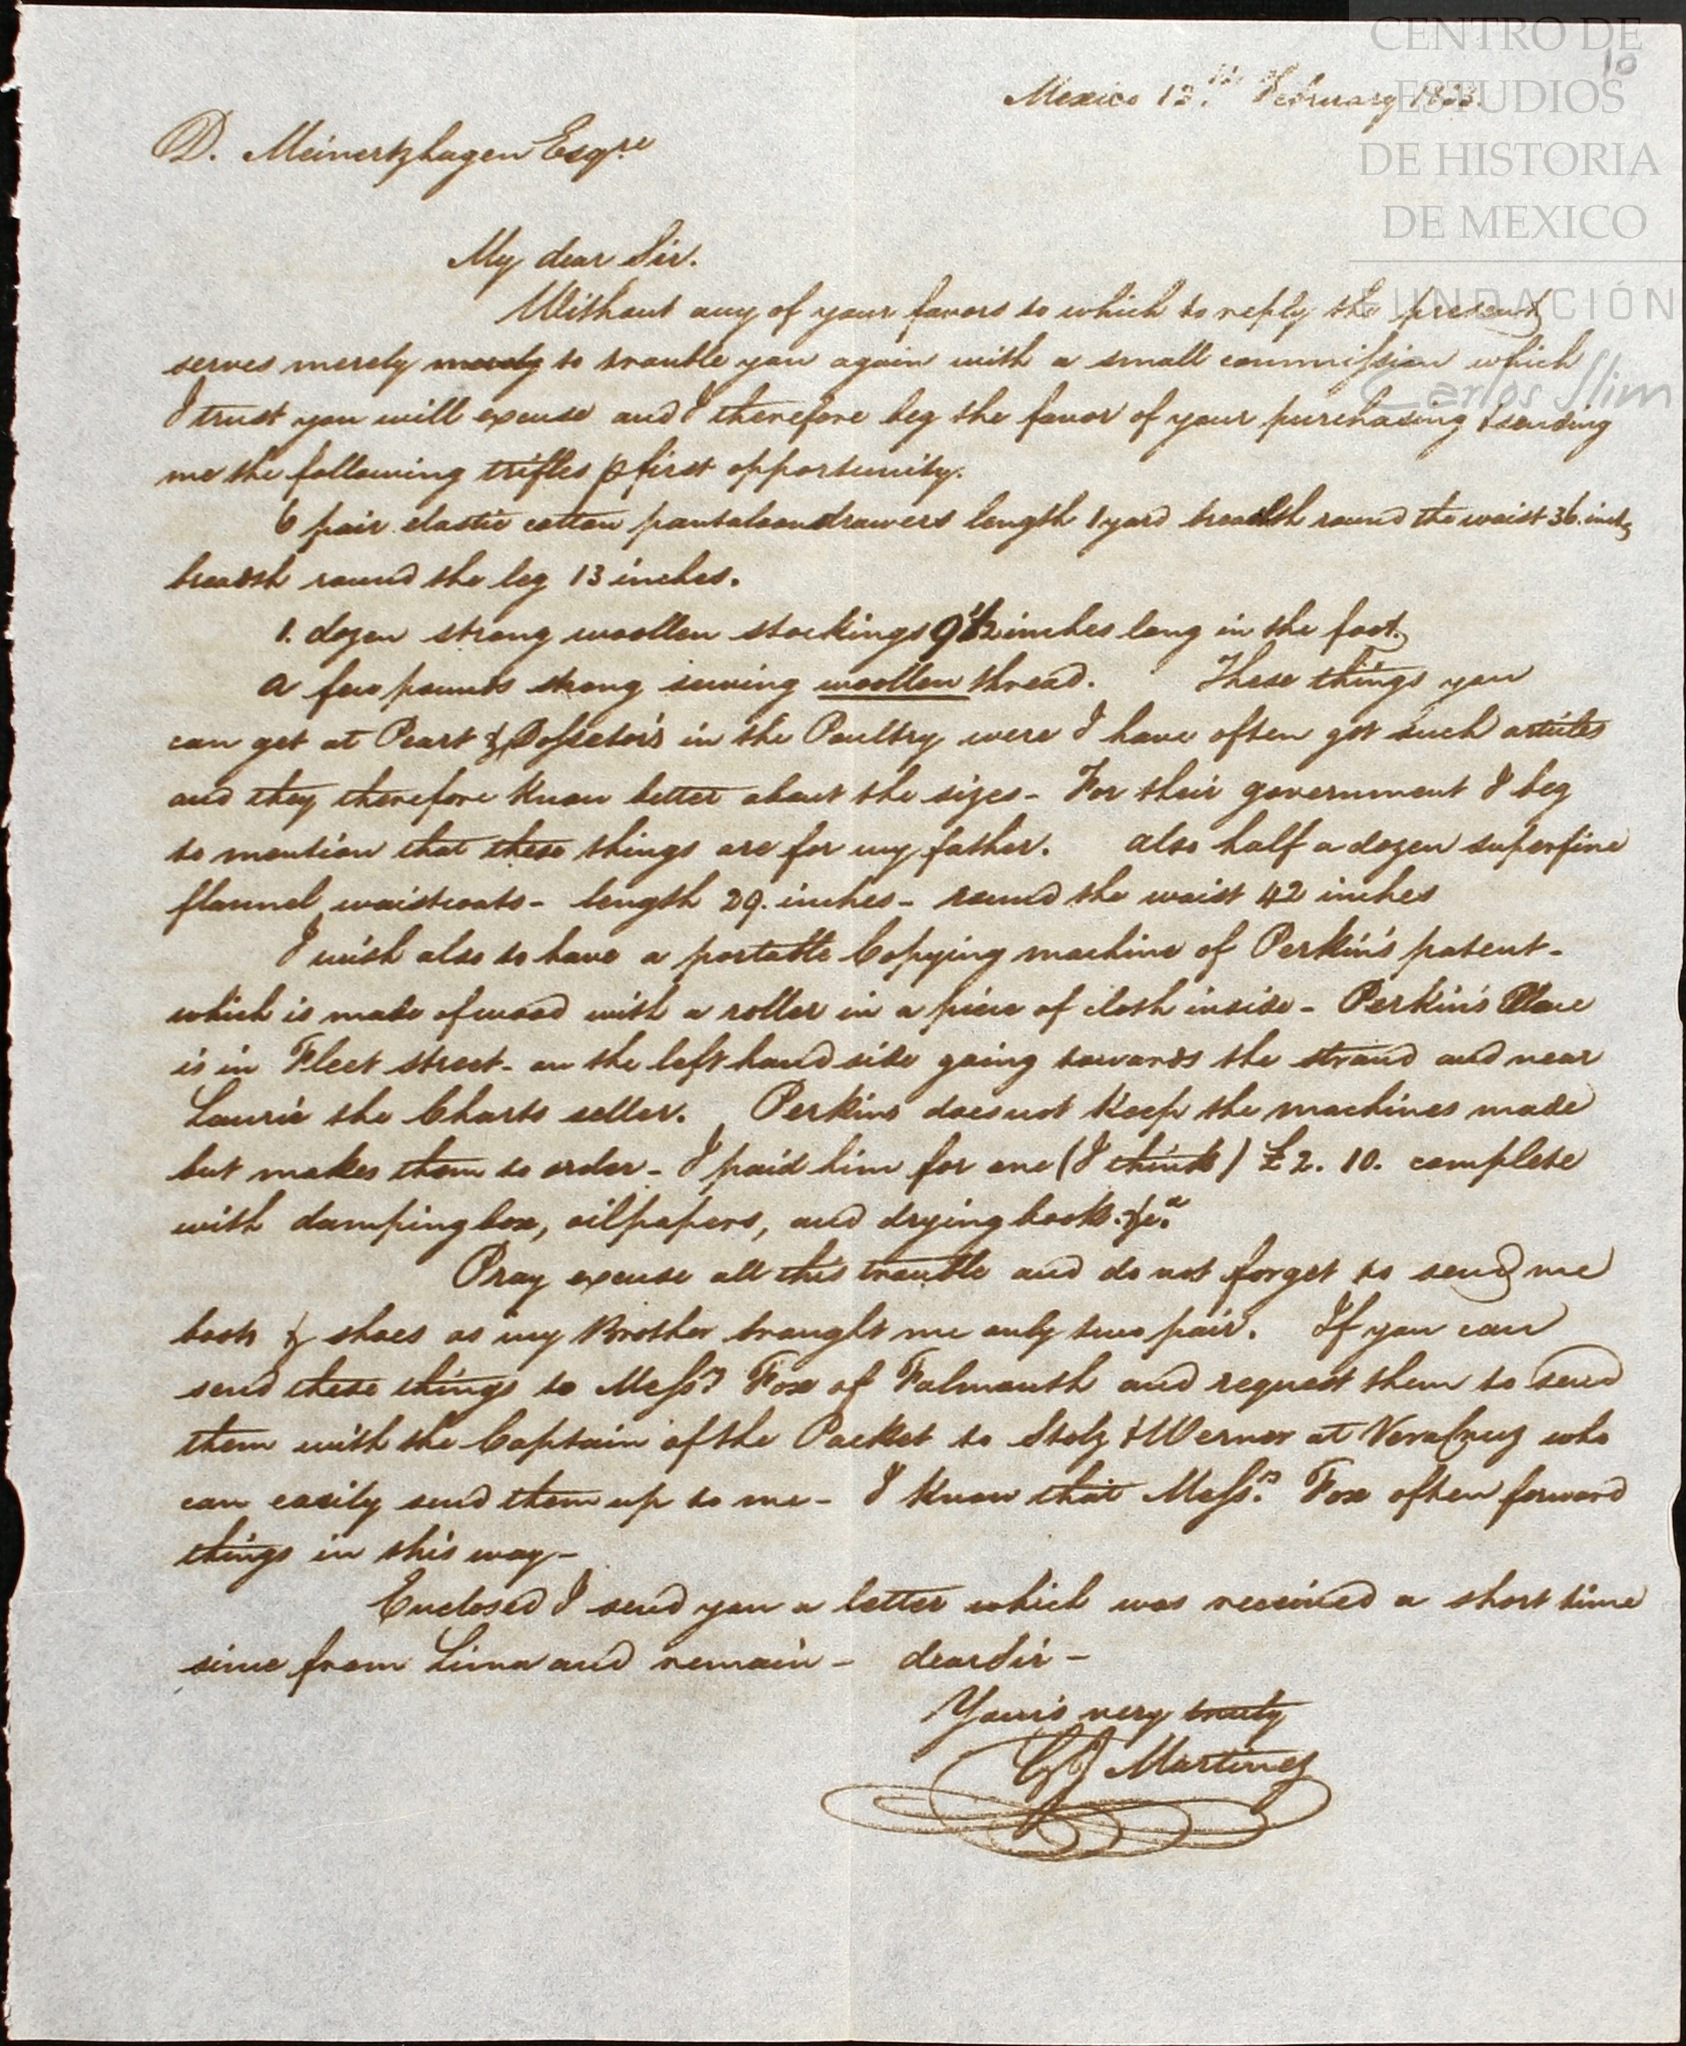 CENTRO DE
ESTUDIOS
DE HISTORIA
DE MEXICO
FUNDACIÓN
Carlos Slim
10
Mexico 12.th February
D. Meinertzhagen Esqre
My dear Sir.
Without any of your favors to which to reply the present
serves merely merely to trouble you again with a small commission which
I trust you will excuse and I therefore beg the favor of your purchasing & sending
me the following trifles p first opportunity.
6 pair elastic cotton pantaloon drawers length 1 yard breadth round the waist 36. inches
breadth round the leg 13 inches.
1. dozen strong woollen stockings 9 1/2 inches long in the foot.
a few pounds strong sewing woollen thread. These things you
can get at Peart & in the Poultry were I have often got such articles
and they therefore know better about the sizes - For their government I beg
to mention that these things are for my father. also half a dozen superfine
flannel waistcoats - length 29. inches - round the waist 42 inches
I wish also to have a portable Copying machine of Perkin's patent -
which is made of wood with a roller in a piece of cloth inside - Perkin's Place
is in Fleet street - on the left hand side going towards the strand and near
Laurie the Charts seller. Perkins does not keep the machines made
but makes them to order - I paid him for one (I think) £2. 10. complete
with damping box, oilpapers, and drying book. &c.a
Pray excuse all this trouble and do not forget to send me
boots & shoes as my Brother brought me only two pair. If you can
send these things to Messrs Fox of Falmouth and request them to send
them with the Captain of the Packet to Stolz & Werner at VeraCruz who
can easily send them up to me - I know that Messrs. Fox often forward
things in this way -
Enclosed I send you a letter which was received a short time
since from Lima and remain - dear Sir -
Your's very truly
Martinez